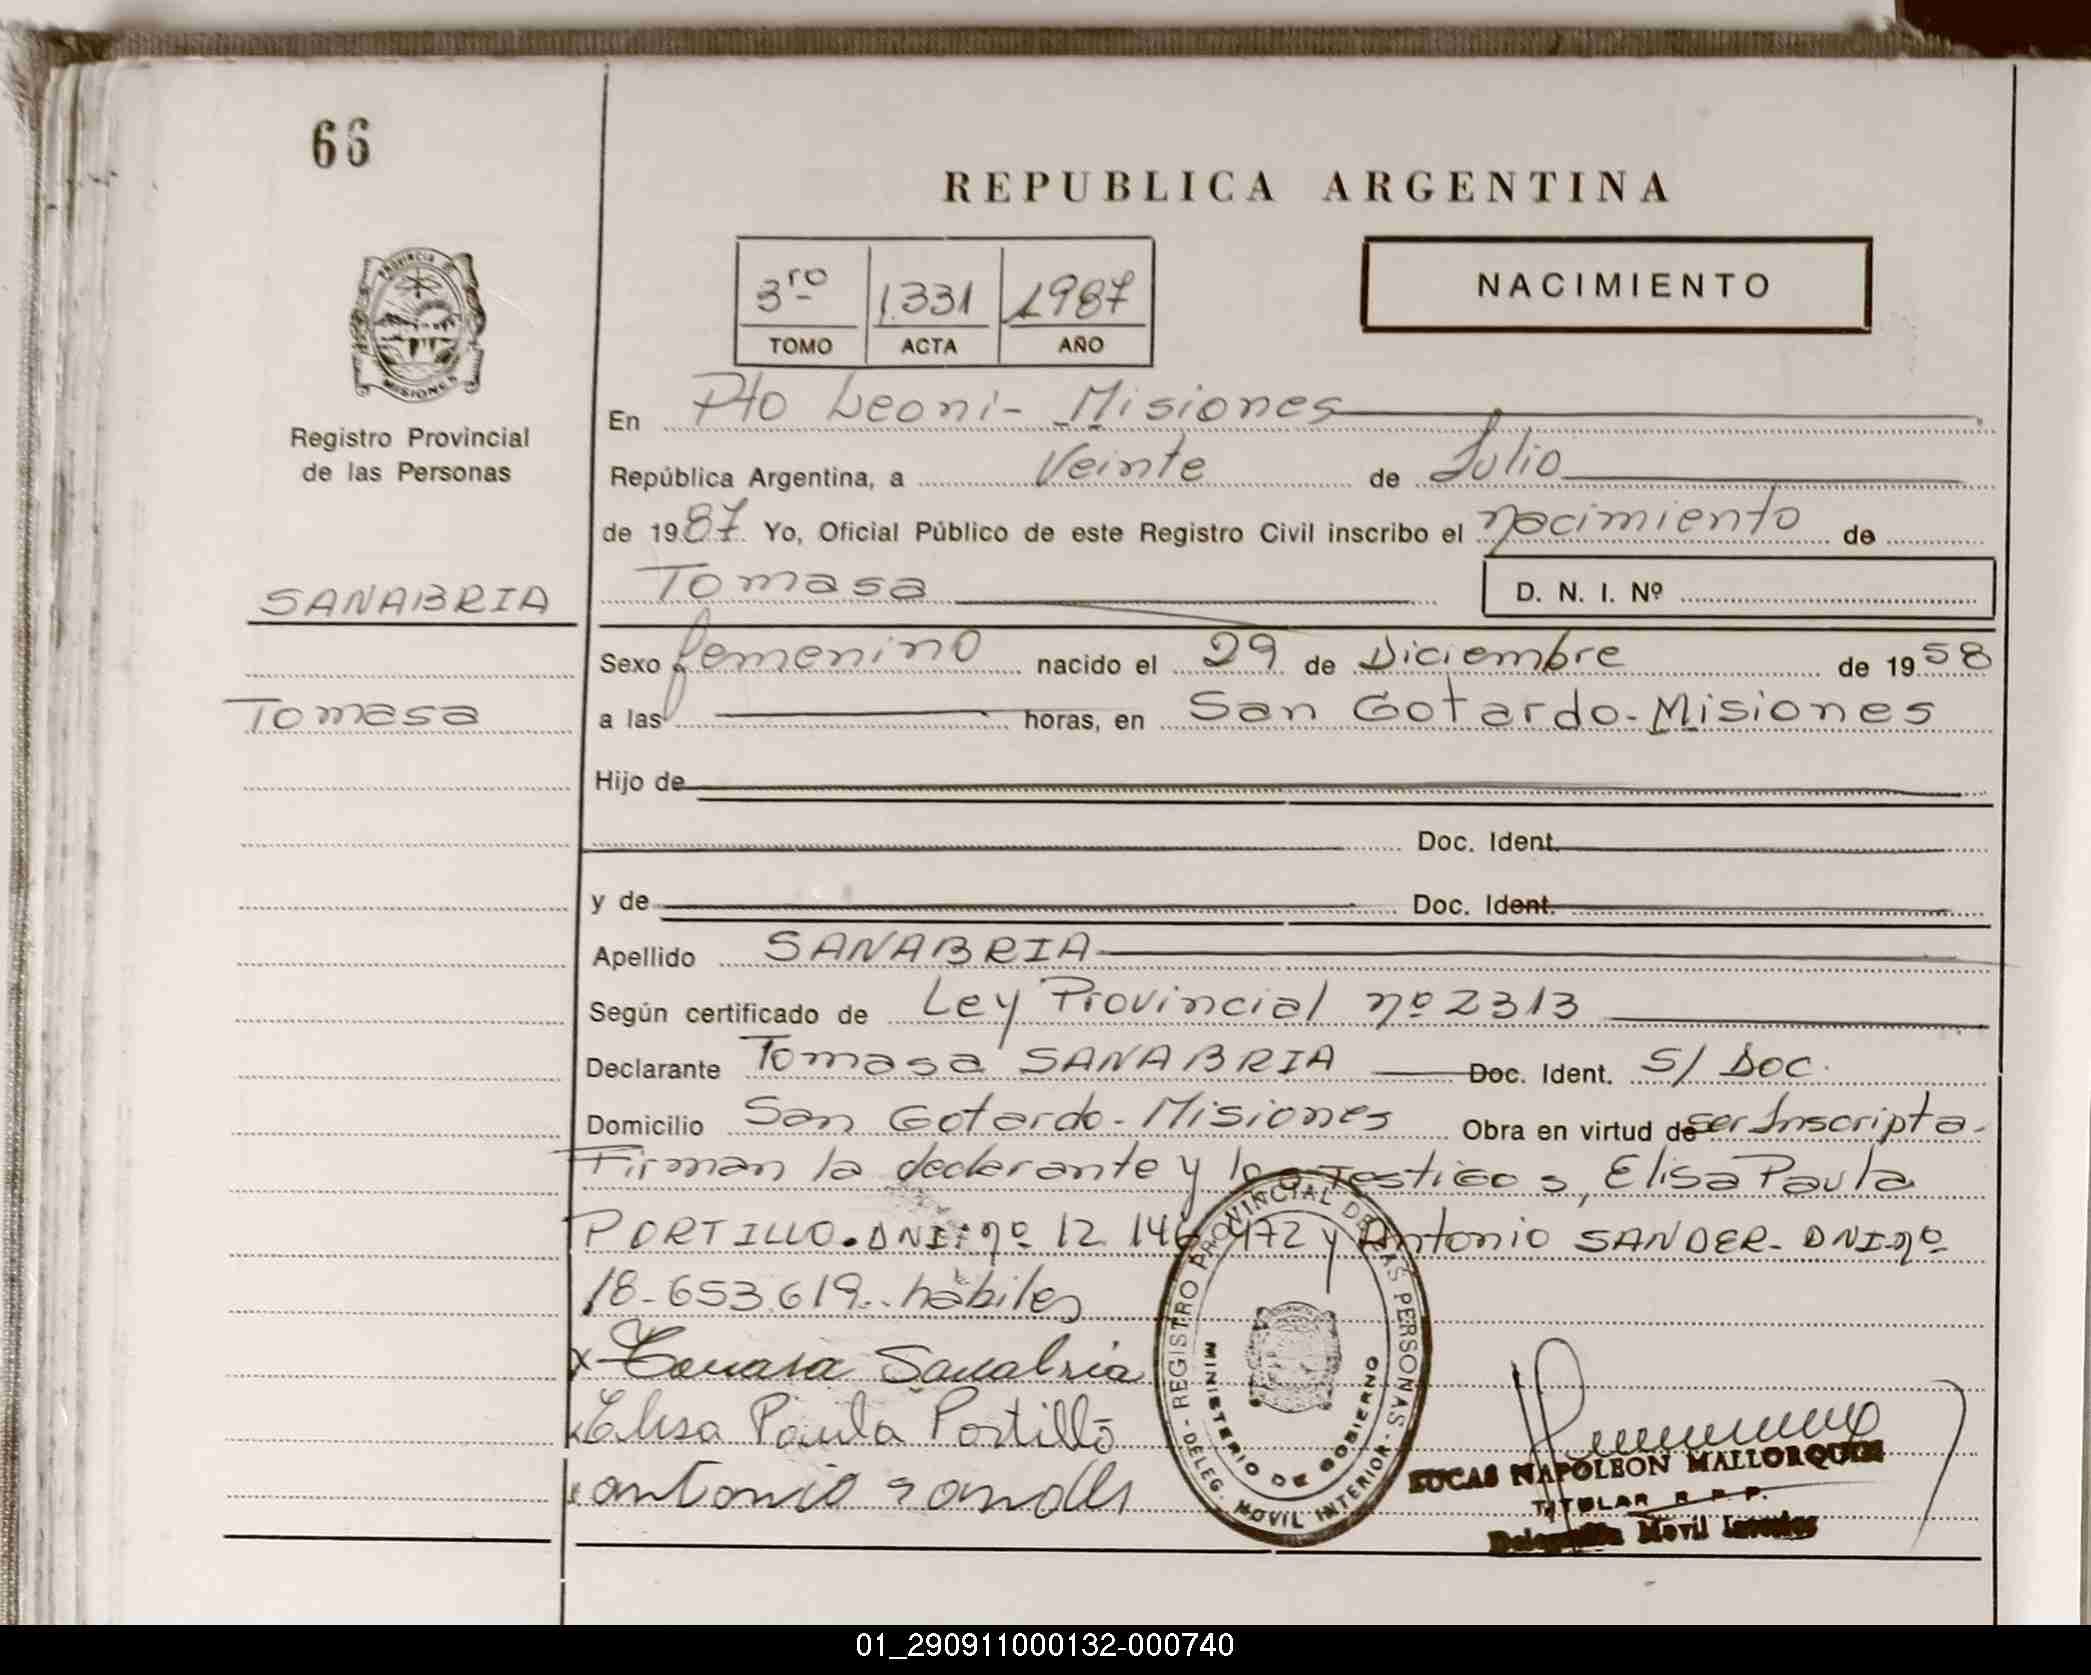 66
REPUBLICA ARGENTINA
PROVINCIA DE
MISIONES
3ro 1.331 1987
TOMO ACTA AÑO
NACIMIENTO
Registro Provincial
de las Personas
En Pto Leoni- Misiones
República Argentina, a Veinte de Julio
de 1987. Yo, Oficial Público de este Registro Civil inscribo el nacimiento de
SANABRIA
Tomasa D. N. I. Nº
Sexo femenino nacido el 29 de Diciembre de 1958
Tomasa
a las horas, en San Gotardo-Misiones
Hijo de
Doc. Ident.
y de Doc. Ident.
Apellido SANABRIA
Según certificado de Ley Provincial nº 2313
Declarante Tomasa SANABRIA Doc. Ident. S/ Doc.
Domicilio San Gotardo-Misiones Obra en virtud de ser Inscripta.
Firman la declarante y los Testigos, Elisa Paula
PORTILLO. DNI: nº 12.146.472 y Antonio SANDER- DNI-nº
18-653.619.. hábiles
x Tomasa Sanabria
x Elisa Paula Portillo
x antonio sander
REGISTRO PROVINCIAL DE LAS PERSONAS
- DELEG. MOVIL INTERIOR -
MINISTERIO DE GOBIERNO
LUCAS NAPOLEON MALLORQUIN
TITULAR R. P. P.
Delegación Movil Interior
01_290911000132-000740